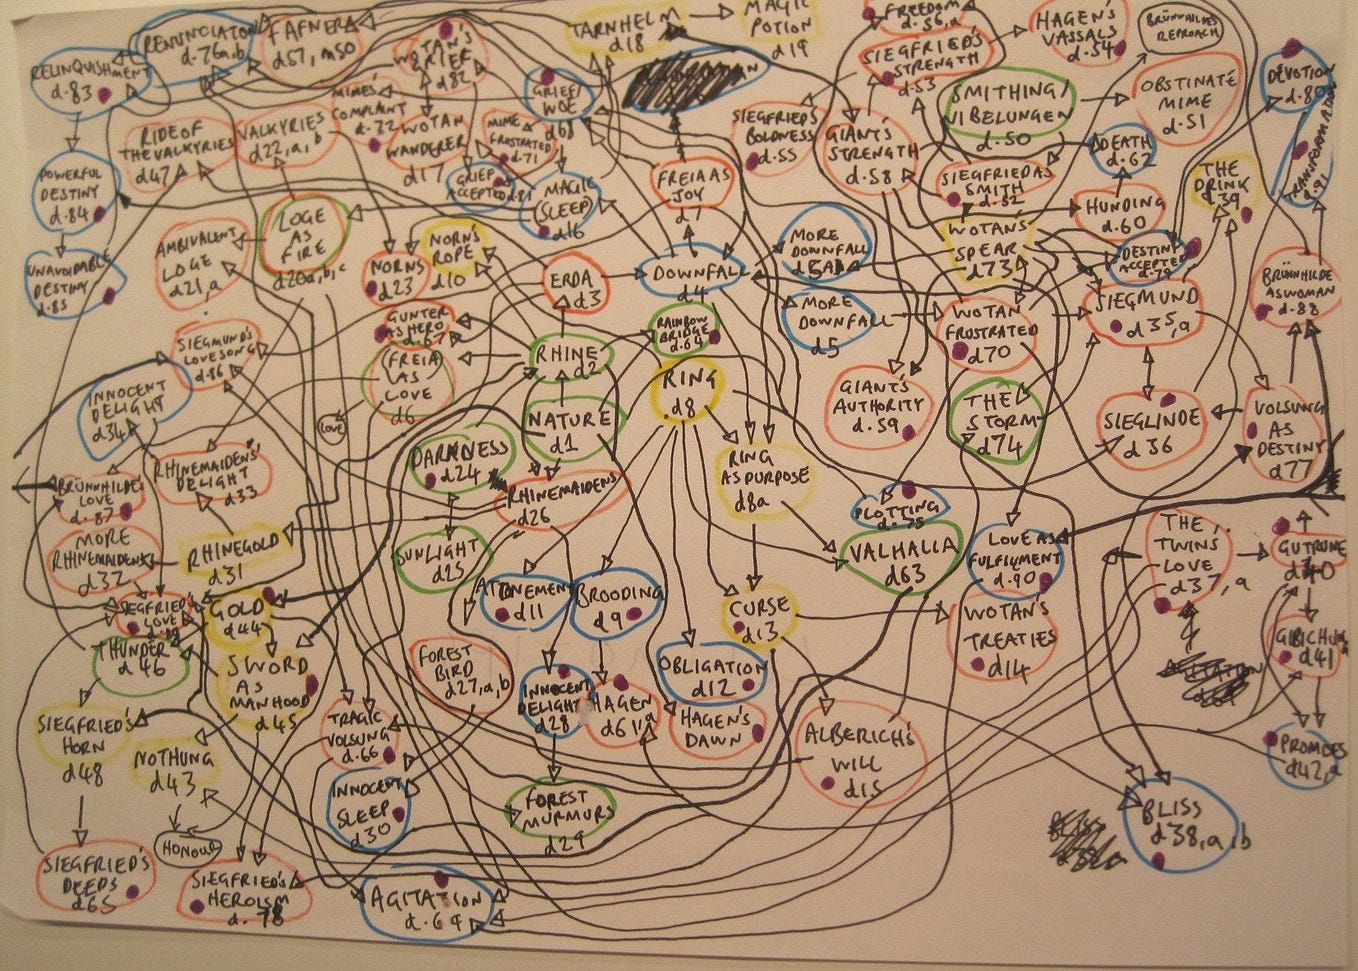 RENUNCIATION
d.76a,b
FAFNER
d57, m50
WOTAN'S
GRIEF
d82
TARNHELM
d18
MAGIC
POTION
d19
FREEDOM
d.56,a
HAGEN'S
VASSALS
d.54
BRÜNNHILDE'S
REPROACH
RELINQUISHMENT
d.83
MIME'S
COMPLAINT
d.72
GRIEF/
WOE
d68
SIEGFRIED'S
STRENGTH
d.53
SMITHING/
NIBELUNGEN
d.50
OBSTINATE
MIME
d.51
DEVOTION
d.80
RIDE OF
THE VALKYRIES
d47
VALKYRIES
d22,a,b
WOTAN
WANDERER
d17
MIME
FRUSTRATED
d.71
SIEGFRIED'S
BOLDNESS
d.55
GIANT'S
STRENGTH
d.58
DEATH
d.62
POWERFUL
DESTINY
d.84
GRIEF
ACCEPTED
d.81
MAGIC
(SLEEP)
d16
FREIA AS
JOY
d7
SIEGFRIED AS
SMITH
d.52
THE
DRINK
d39
d.91
HUNDING
d.60
LOGE
AS
FIRE
d20a,b,c
AMBIVALENT
LOGE
d21,a
NORNS
d23
NORN'S
ROPE
d10
ERDA
d3
DOWNFALL
d4
MORE
DOWNFALL
d5A
WOTAN'S
SPEAR
d73
DESTINY
ACCEPTED
d.79
UNAVOIDABLE
DESTINY
d.85
BRÜNNHILDE
AS WOMAN
d.88
GUNTER
AS HERO
d.67
RAINBOW
BRIDGE
d.64
MORE
DOWNFALL
d5
WOTAN
FRUSTRATED
d70
SIEGMUND
d35,a
SIEGMUND'S
LOVE SONG
d.86
(FREIA)
AS
LOVE
d6
RHINE
d2
RING
d8
INNOCENT
DELIGHT
d34
LOVE
NATURE
d1
GIANT'S
AUTHORITY
d.59
THE
STORM
d74
SIEGLINDE
d36
VOLSUNG
AS
DESTINY
d77
DARKNESS
d24
RING
AS PURPOSE
d8a
BRÜNNHILDE'S
LOVE
d.87
RHINEMAIDENS'
DELIGHT
d33
RHINEMAIDENS
d26
PLOTTING
d.75
MORE
RHINEMAIDENS
d32
RHINEGOLD
d31
SUNLIGHT
d25
VALHALLA
d63
LOVE AS
FULFILMENT
d.90
THE
TWINS
LOVE
d37,a
GUTRUNE
d40
SIEGFRIED'S
LOVE
GOLD
d44
ATONEMENT
d11
BROODING
d9
CURSE
d13
WOTAN'S
TREATIES
d14
GIBICHUNG
d41
THUNDER
d46
SWORD
AS
MANHOOD
d45
FOREST
BIRD
d27,a,b
OBLIGATION
d12
INNOCENT
DELIGHT
d28
HAGEN
d61,a
HAGEN'S
DAWN
SIEGFRIED'S
HORN
d48
NOTHUNG
d43
TRAGIC
VOLSUNG
d.66
ALBERICH'S
WILL
d15
PROMISES
d42,a
INNOCENT
SLEEP
d30
FOREST
MURMURS
d29
BLISS
d38,a,b
BLISS
d38a
HONOUR
SIEGFRIED'S
DEEDS
d65
SIEGFRIED'S
HEROISM
d.78
AGITATION
d.69